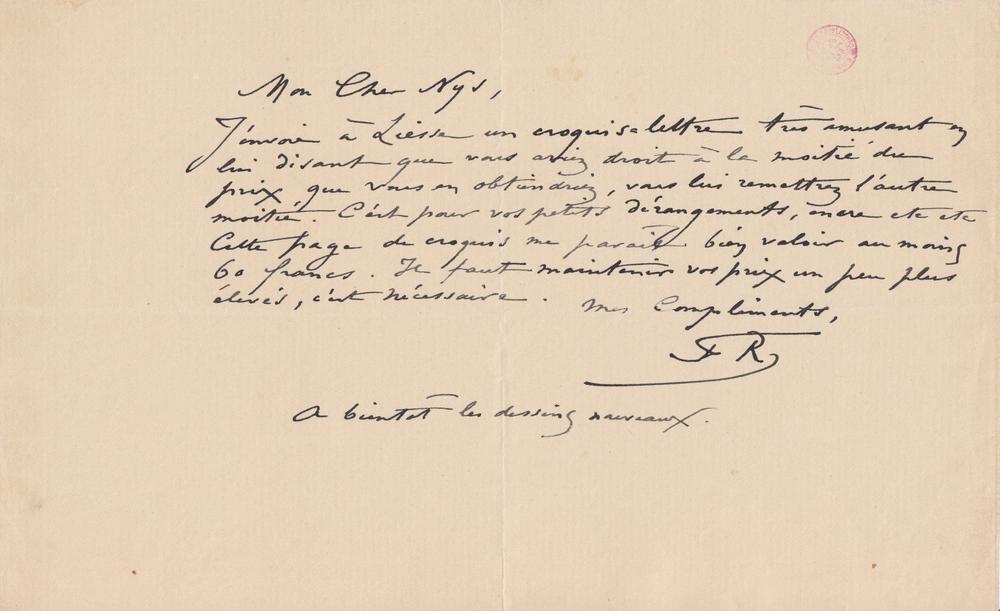 Mon Cher Nys,
J'envoie à Liesse un croquis-lettre très amusant en
lui disant que vous aviez droit à la moitié du
prix que vous en obtiendriez, vous lui remettrez l'autre
moitié. C'est pour vos petits dérangements, encre etc etc
Cette page de croquis me paraît bien valoir au moins
60 francs. Il faut maintenir vos prix un peu plus
élevés, c'est nécessaire.
Mes Compliments,
FR
A bientôt les dessins nouveaux.